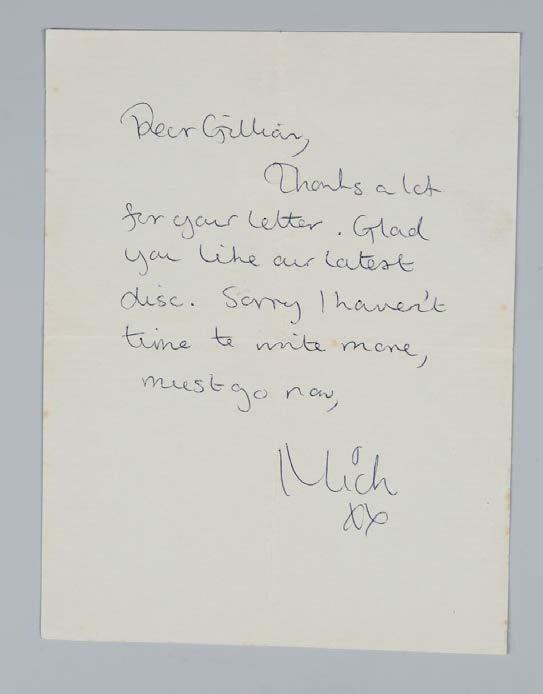 Dear Gillian,
Thanks a lot
for your letter. Glad
you like our latest
disc. Sorry I haven't
time to write more,
must go now,
Mick
xx